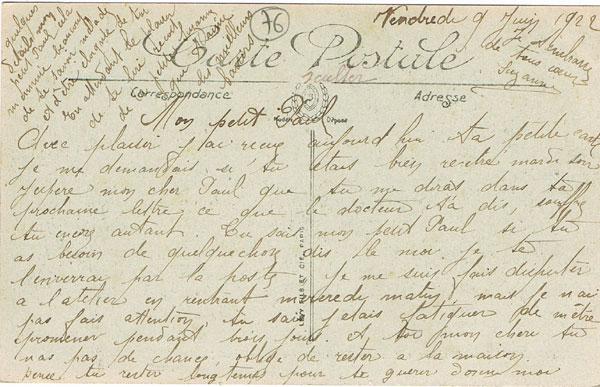 Vendredi 9 Juin 1922
76
Carte Postale
Correspondance
Adresse
Mon petit Paul
Avec plaisir j'ai reçu aujourd'hui ta petite carte
je me demandais si tu étais bien rentré mardi soir
J'espère mon cher Paul que tu me diras dans ta
prochaine lettre ce que le docteur t'a dis, souffre
tu encore autant. Tu sais mon petit Paul si tu
as besoin de quelquechose dis le moi je te
l'enverrai par la poste. Je me suis fais disputer
a l'atelier en rentrant mercredy matin, mais je n'ai
pas fais attention, tu sais j'etais fatiguer de m'être
promener pendant trois jours. Et toi mon chere tu
n'as pas de chance, obligé de rester a la maison.
pense tu rester longtemps pour te guérir donne moi
quelques
détails mon
petit Paul
de
et d'être éloigné de toi
En attendant le
de te lire reçois
de ta petite
que
des meilleurs
baisers
de tout cœur
Suzanne
LEVY FILS ET CIE, PARIS